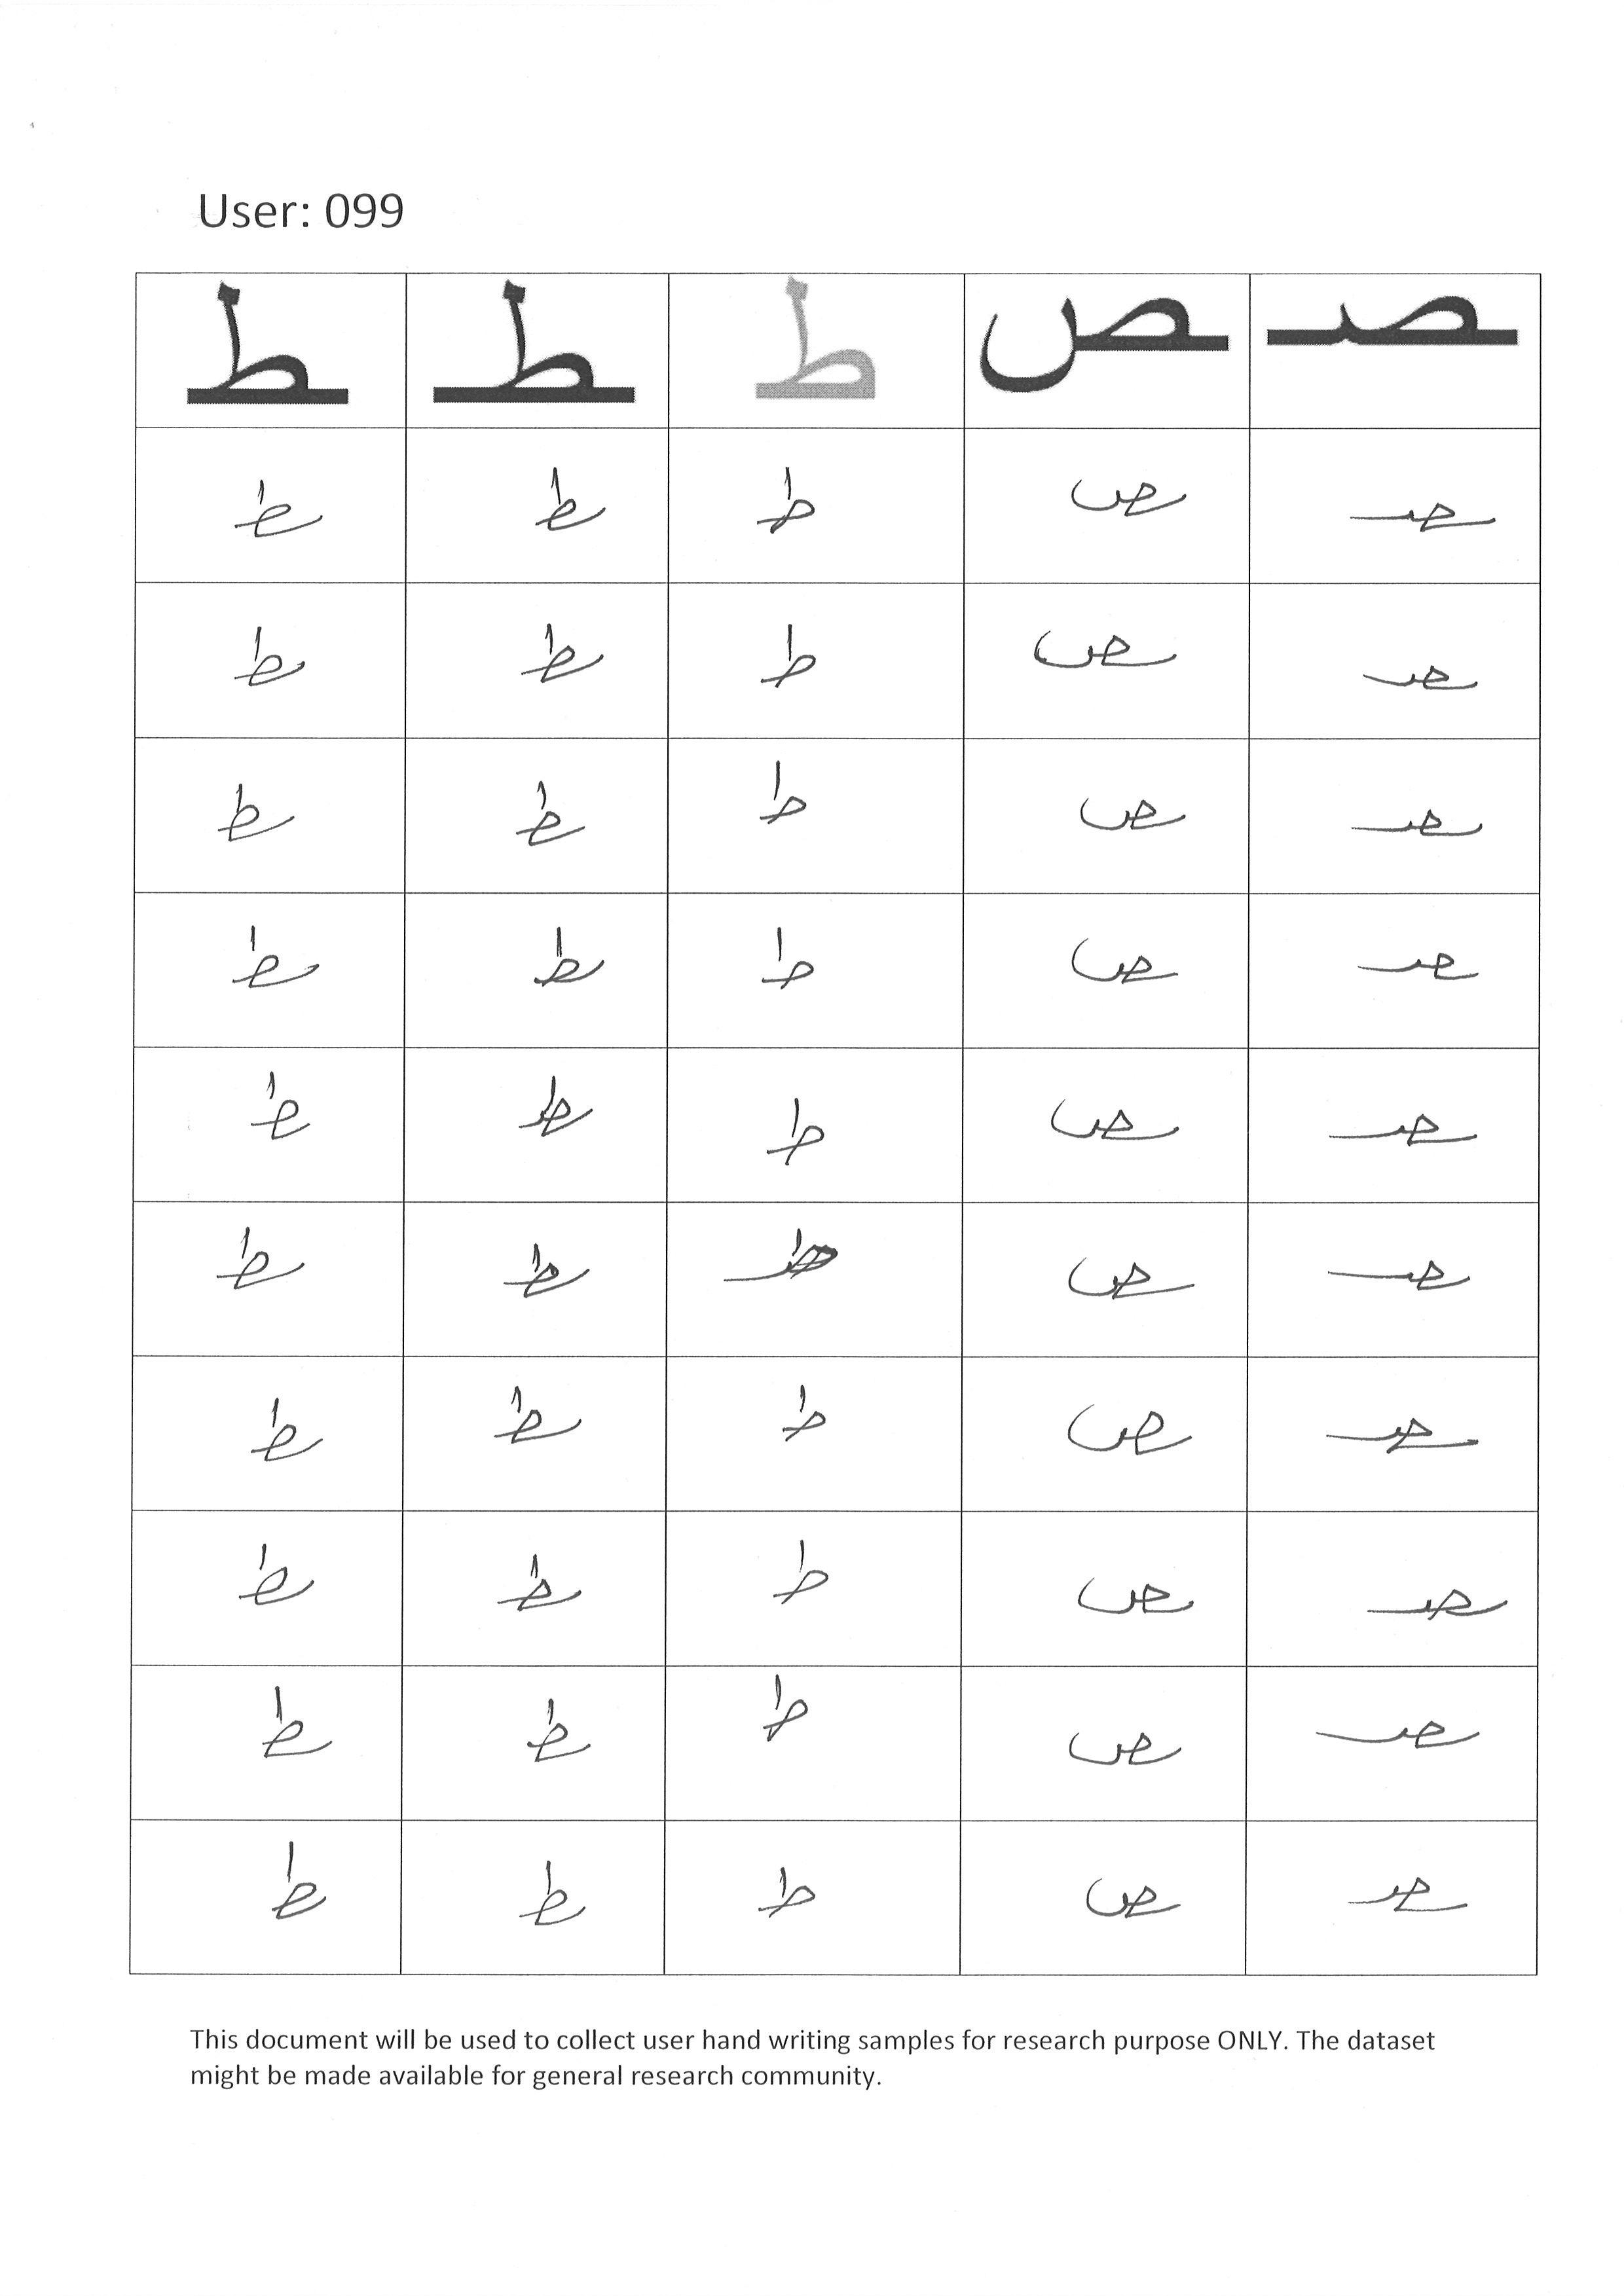 User: 099
ـصـ ـص ط ـطـ ـط
ـصـ ـص ط ـطـ ـط
ـصـ ـص ط ـطـ ـط
ـصـ ـص ط ـطـ ـط
ـصـ ـص ط ـطـ ـط
ـصـ ـص ط ـطـ ـط
ـصـ ـص ـطـ ـط
ـصـ ـص ط ـطـ ـط
ـصـ ـص ط ـطـ ـط
ـصـ ـص ط ـطـ ـط
ـصـ ـص ط ـطـ ـط
This document will be used to collect user hand writing samples for research purpose ONLY. The dataset
might be made available for general research community.